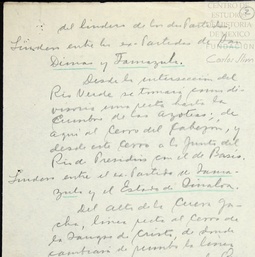 CENTRO DE
ESTUDIOS
DE HISTORIA
DE MEXICO
FUNDACIÓN
Carlos Slim
del lindero de los dos Partidos
Lindero entre los ex-Partidos de San
Dimas y Tamazula.
Desde la intersección del
Río Verde se tomará como di-
visoria una recta hasta la
Cumbre de los Azoteas; de
aquí al Cerro del Cabezón, y
desde este cerro a la Junta del
Río de Presidio con el de Basis.
Lindero entre el ex-Partido de Tama-
zula y el Estado de Sinaloa.
Del alto de la Cueva
línea recta al Cerro de
la Sangre de Cristo, de donde
cambiará de rumbo la línea